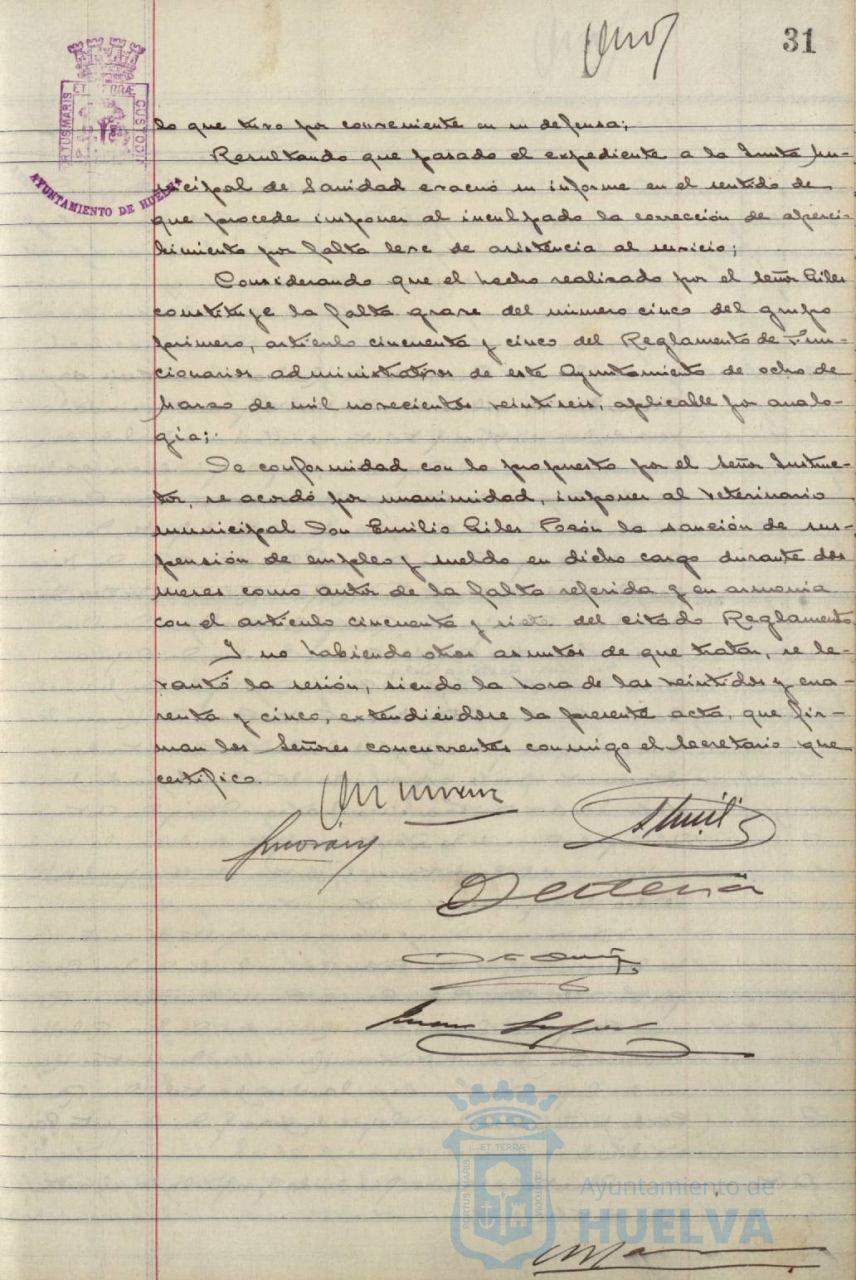 31
ET. TERRÆ
PORTUS MARIS
CUSTODI
AYUNTAMIENTO DE HUELVA
lo que tuvo por conveniente en su defensa;
Resultando que pasado el expediente a la Junta mu-
nicipal de Sanidad evacuó su informe en el sentido de
que procede imponer al inculpado la corrección de aperci-
bimiento por falta leve de asistencia al servicio;
Considerando que el hecho realizado por el Señor Giles
constituye la falta grave del número cinco del grupo
primero, artículo cincuenta y cinco del Reglamento de Fun-
cionarios administrativos de este Ayuntamiento de ocho de
Marzo de mil novecientos veintiseis, aplicable por analo-
gía;
De conformidad con lo propuesto por el Señor Instruc-
tor, se acordó por unanimidad, imponer al Veterinario
municipal Don Emilio Giles the sanción de sus-
pensión de empleo y sueldo en dicho cargo durante dos
meses como autor de la falta referida y en armonía
con el artículo cincuenta y siete del citado Reglamento
Y no habiendo otros asuntos de que tratar, se le-
vantó la sesión, siendo la hora de las veintidos y cua-
renta y cinco, extendiéndose la presente acta, que fir-
man los Señores concurrentes conmigo el Secretario que
certifico.
ET. TERRÆ
PORTUS MARIS
CUSTODIA
Ayuntamiento de
HUELVA